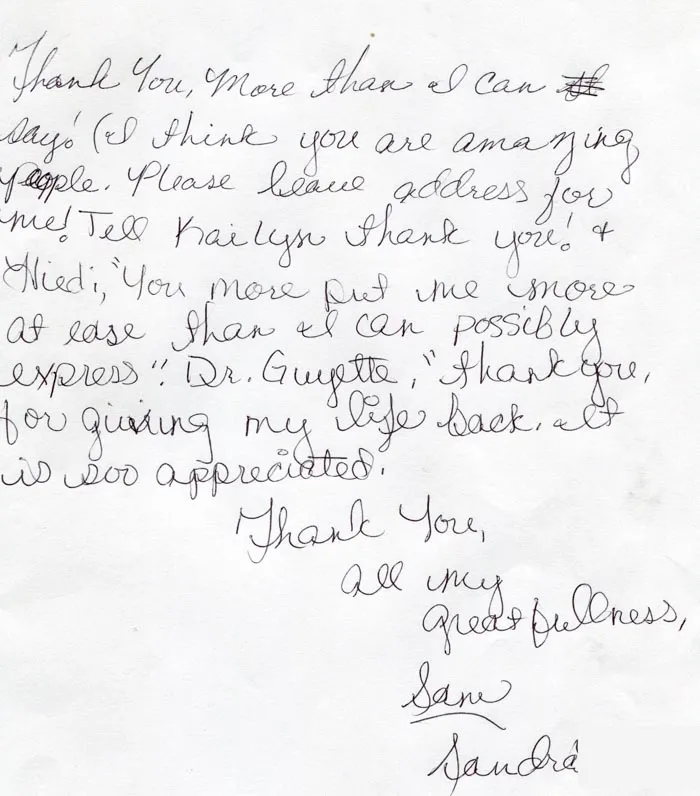 Thank You, More than I can
say! (I think you are amazing
people. Please leave address for
me! Tell Kailyn thank you! +
Hiedi, "You more put me more
at ease than I can possibly
express". Dr. Guyette, "thank you,
for giving my life back. It
is soo appreciated.
Thank You,
All my
greatfullness,
Sandra